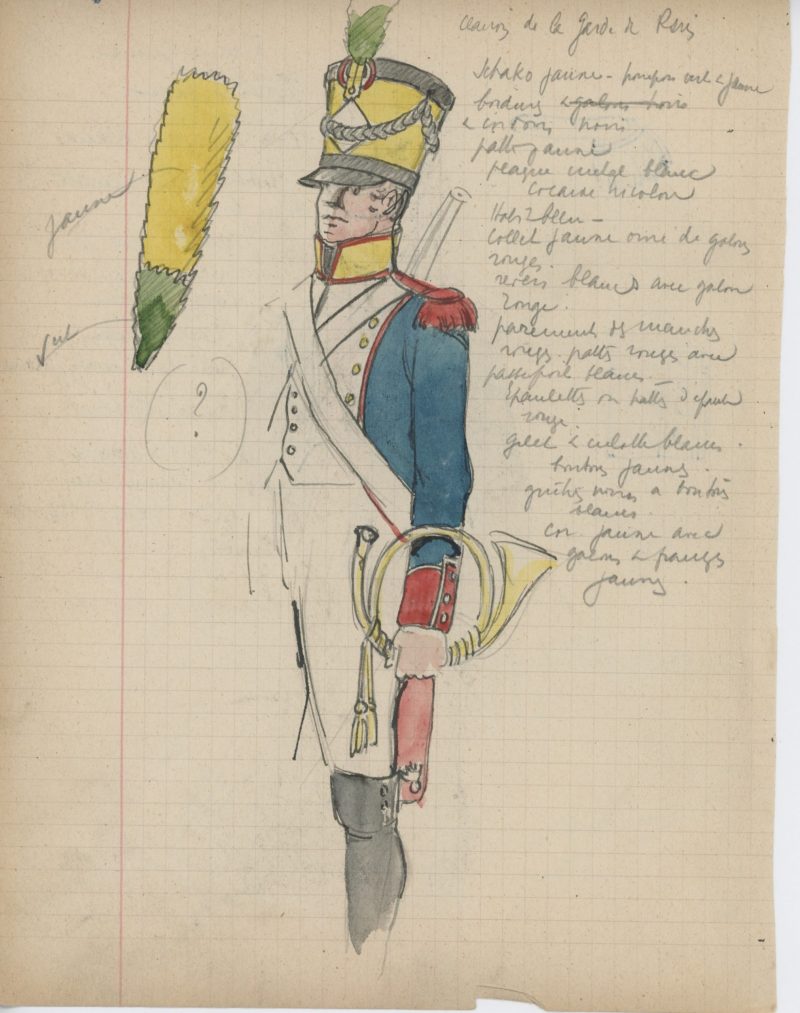 Clairon de la Garde de Paris
Schako jaune - pompon vert & jaune
bordures & galons noirs
& cordons noirs
patte jaune
plaque métal blanc
cocarde tricolore
Habit bleu -
Collet jaune orné de galons
rouges.
revers blancs avec galon
rouge.
parements des manches
rouges. pattes rouges avec
passepoil blancs -
Epaulettes ou pattes d'épaule
rouge.
gilet & culotte blancs.
boutons jaunes.
guêtres noires a boutons
blancs.
Cor jaune avec
galons & franges
jaunes.
jaune
vert
?